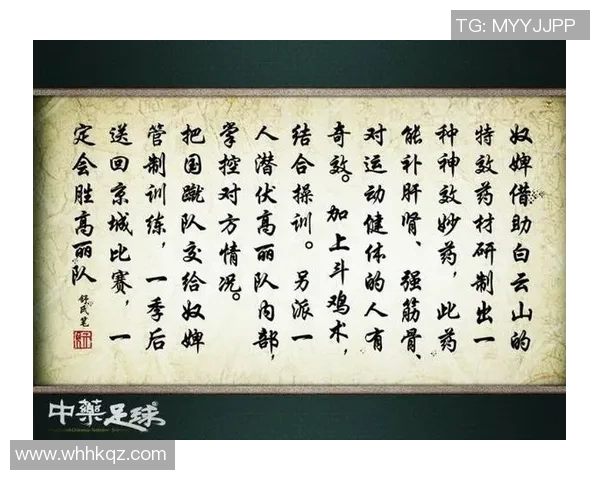 TG: MYYJJPP
奴婢借助白云山的
特效药材研制出一
种神效妙药，此药
能补肝肾、强筋骨、
对运动健体的人有
奇效。加上斗鸡术，
结合操训。另派一
人潜伏高丽队内部，
掌控对方情况。
把国蹴队交给奴婢
管制训练，一季后
送回京城比赛，一
定会胜高丽队
舒氏笔
中藥足球
www.whhkqz.com